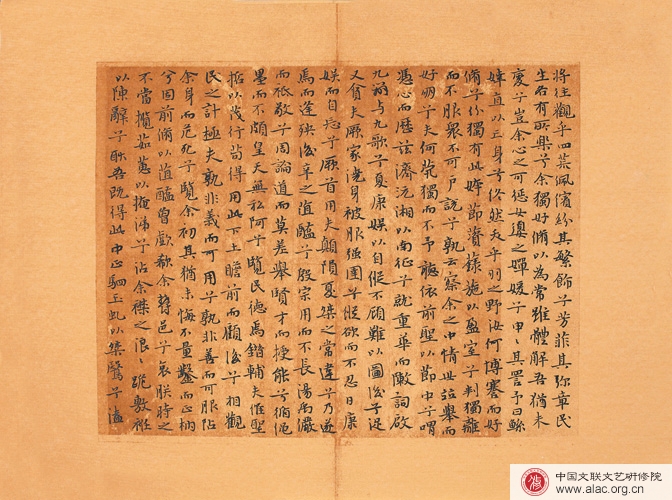 将往觀乎四荒佩繽紛其繁飾兮芳菲菲其弥章民
生各有所樂兮余獨好脩以為常雖體解吾猶未
變兮豈余心之可懲女嬃之嬋媛兮申〻其詈予曰鯀
婞直以亡身兮終然夭乎羽之野汝何博謇而好
脩兮紛獨有此姱節薋菉葹以盈室兮判獨離
而不服衆不可戶說兮孰云察余之中情世並舉而
好朋兮夫何煢獨而不予聽依前聖以節中兮喟
憑心而歷茲濟沅湘以南征兮就重華而陳詞啟
九辯与九歌兮夏康娱以自縱不顧難以圖後兮浞
又貪夫厥家澆身被服强圉兮縱欲而不忍日康
娱而自忘兮厥首用夫顛隕夏桀之常違兮乃遂
焉而逢殃後辛之菹醢兮殷宗用而不長湯禹儼
而祗敬兮周論道而莫差舉賢才而授能兮循繩
墨而不頗皇天無私阿兮覽民德焉錯輔夫維聖
哲以茂行苟得用此下土瞻前而顧後兮相觀
民之計極夫孰非義而可用兮孰非善而可服阽
余身而危死兮覽余初其猶未悔不量鑿而正枘
兮固前脩以菹醢曾歔欷余鬱邑兮哀朕時之
不當攬茹蕙以掩涕兮沾余襟之浪〻跪敷衽
以陳辭兮耿吾既得此中正駟玉虬以椉鷖兮溘
中国文联文艺研修院
www.alac.org.cn